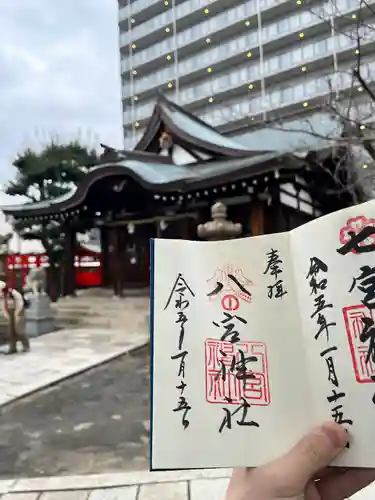 七宮神
令和五年一月十五日
奉拝
八宮神社
令和五年一月十五日